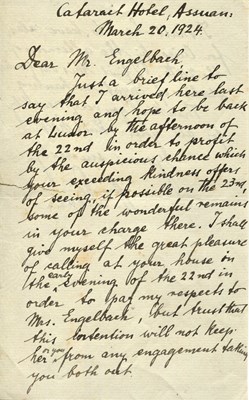 Cataract Hotel, Assuan.
March 20, 1924.
Dear Mr. Engelbach,
Just a brief line to
say that I arrived here last
evening and hope to be back
at Luxor by the afternoon of
the 22nd in order to profit
by the auspicious chance which
your exceeding kindness offers
of seeing, if possible on the 23rd,
some of the wonderful remains
in your charge there. I shall
give myself the great pleasure
of calling at your house on
the early evening of the 22nd in
order to pay my respects to
Mrs. Engelbach, but trust that
this intention will not keep
her or you from any engagement taking
you both out.